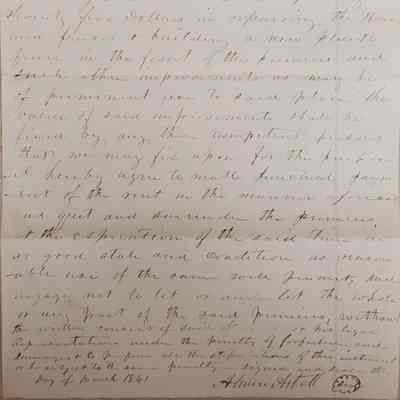 Seventy five dollars in repairing the House
and fences & building a new plank
fence in the front of the premises and
such other improvements as may be
of permanent use to said place the
value of said improvements shall be
fixed by any three competent persons
that we may fix upon for the purpose
I hereby agree to make punctual paym
ent of the rent in the manner aforesaid
and quit and surrender the premises,
at the expiration of the said term in
as good state and condition as reason
able use of the same will permit, and
engage not to let or under let the whole
or any part of the said premises, without
the written consent of said or his legal
Representatives under the penalty of forfeiture and
damages & to perform all the stipulations of this instrument
or be subject to the same penalty signed and seal the
day of March 1861